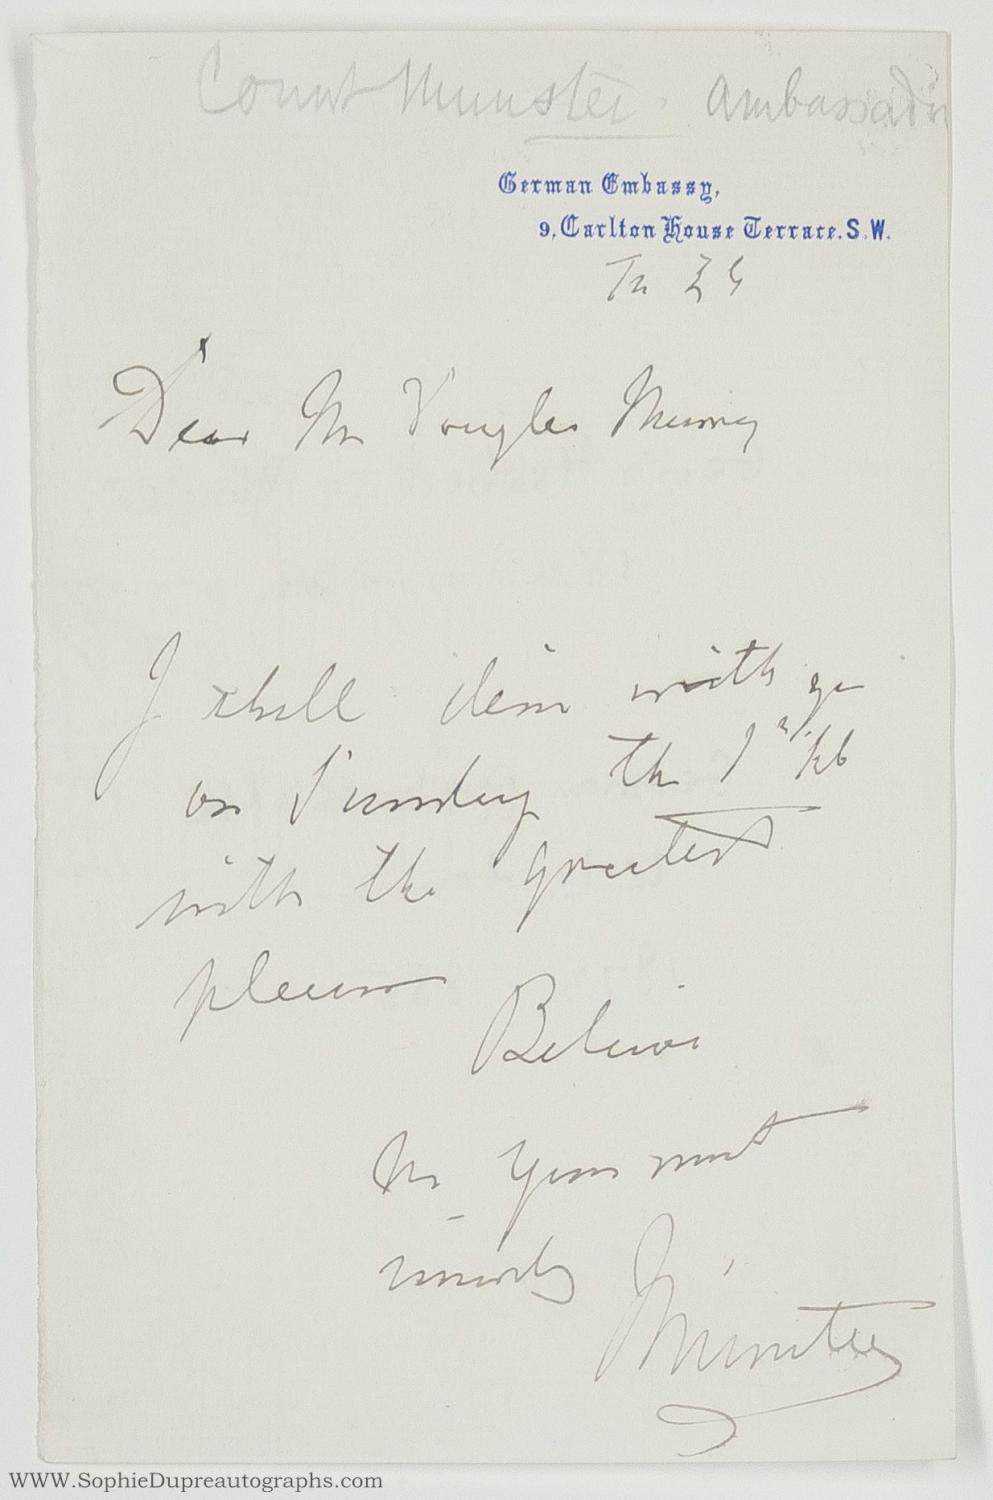 Count Munster. Ambassador
German Embassy,
9, Carlton House Terrace. S.W.
Dear Mr Douglas Murray
I shall dine with you
on Sunday the 1st Feb
with the greatest
pleasure
Believe
Me Yours most
sincerely
Münster
WWW.SophieDupreautographs.com